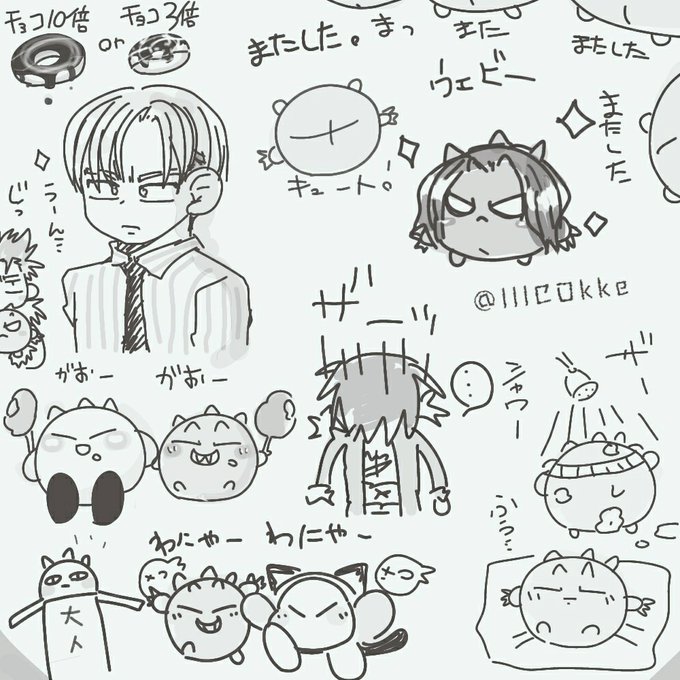 チョコ10倍
or
チョコ3倍
またした。
まっ
また
またした
ウェビー
またした
キュート!
うーん…
じっ
@lllcokke
ザーッ
…
がおー
がおー
ザー
シャワー
ふぅ…
わにゃー
わにゃー
大人